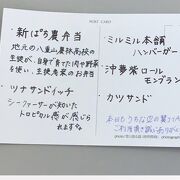 POST CARD
・新ばち農弁当
地元の八重山農林高校の
生徒が、自身で育てた肉や野菜
を使い、生徒考案のお弁当
・ツナサンドイッチ
シーファーサーが効いた
トロピカル感が感じら
れます
・ミルミル本舗
ハンバーガー
・沖夢紫ロール
モンブラン
・カツサンド
本日もうちなぁの翼JTAへ
ご利用頂き誠にありがとう